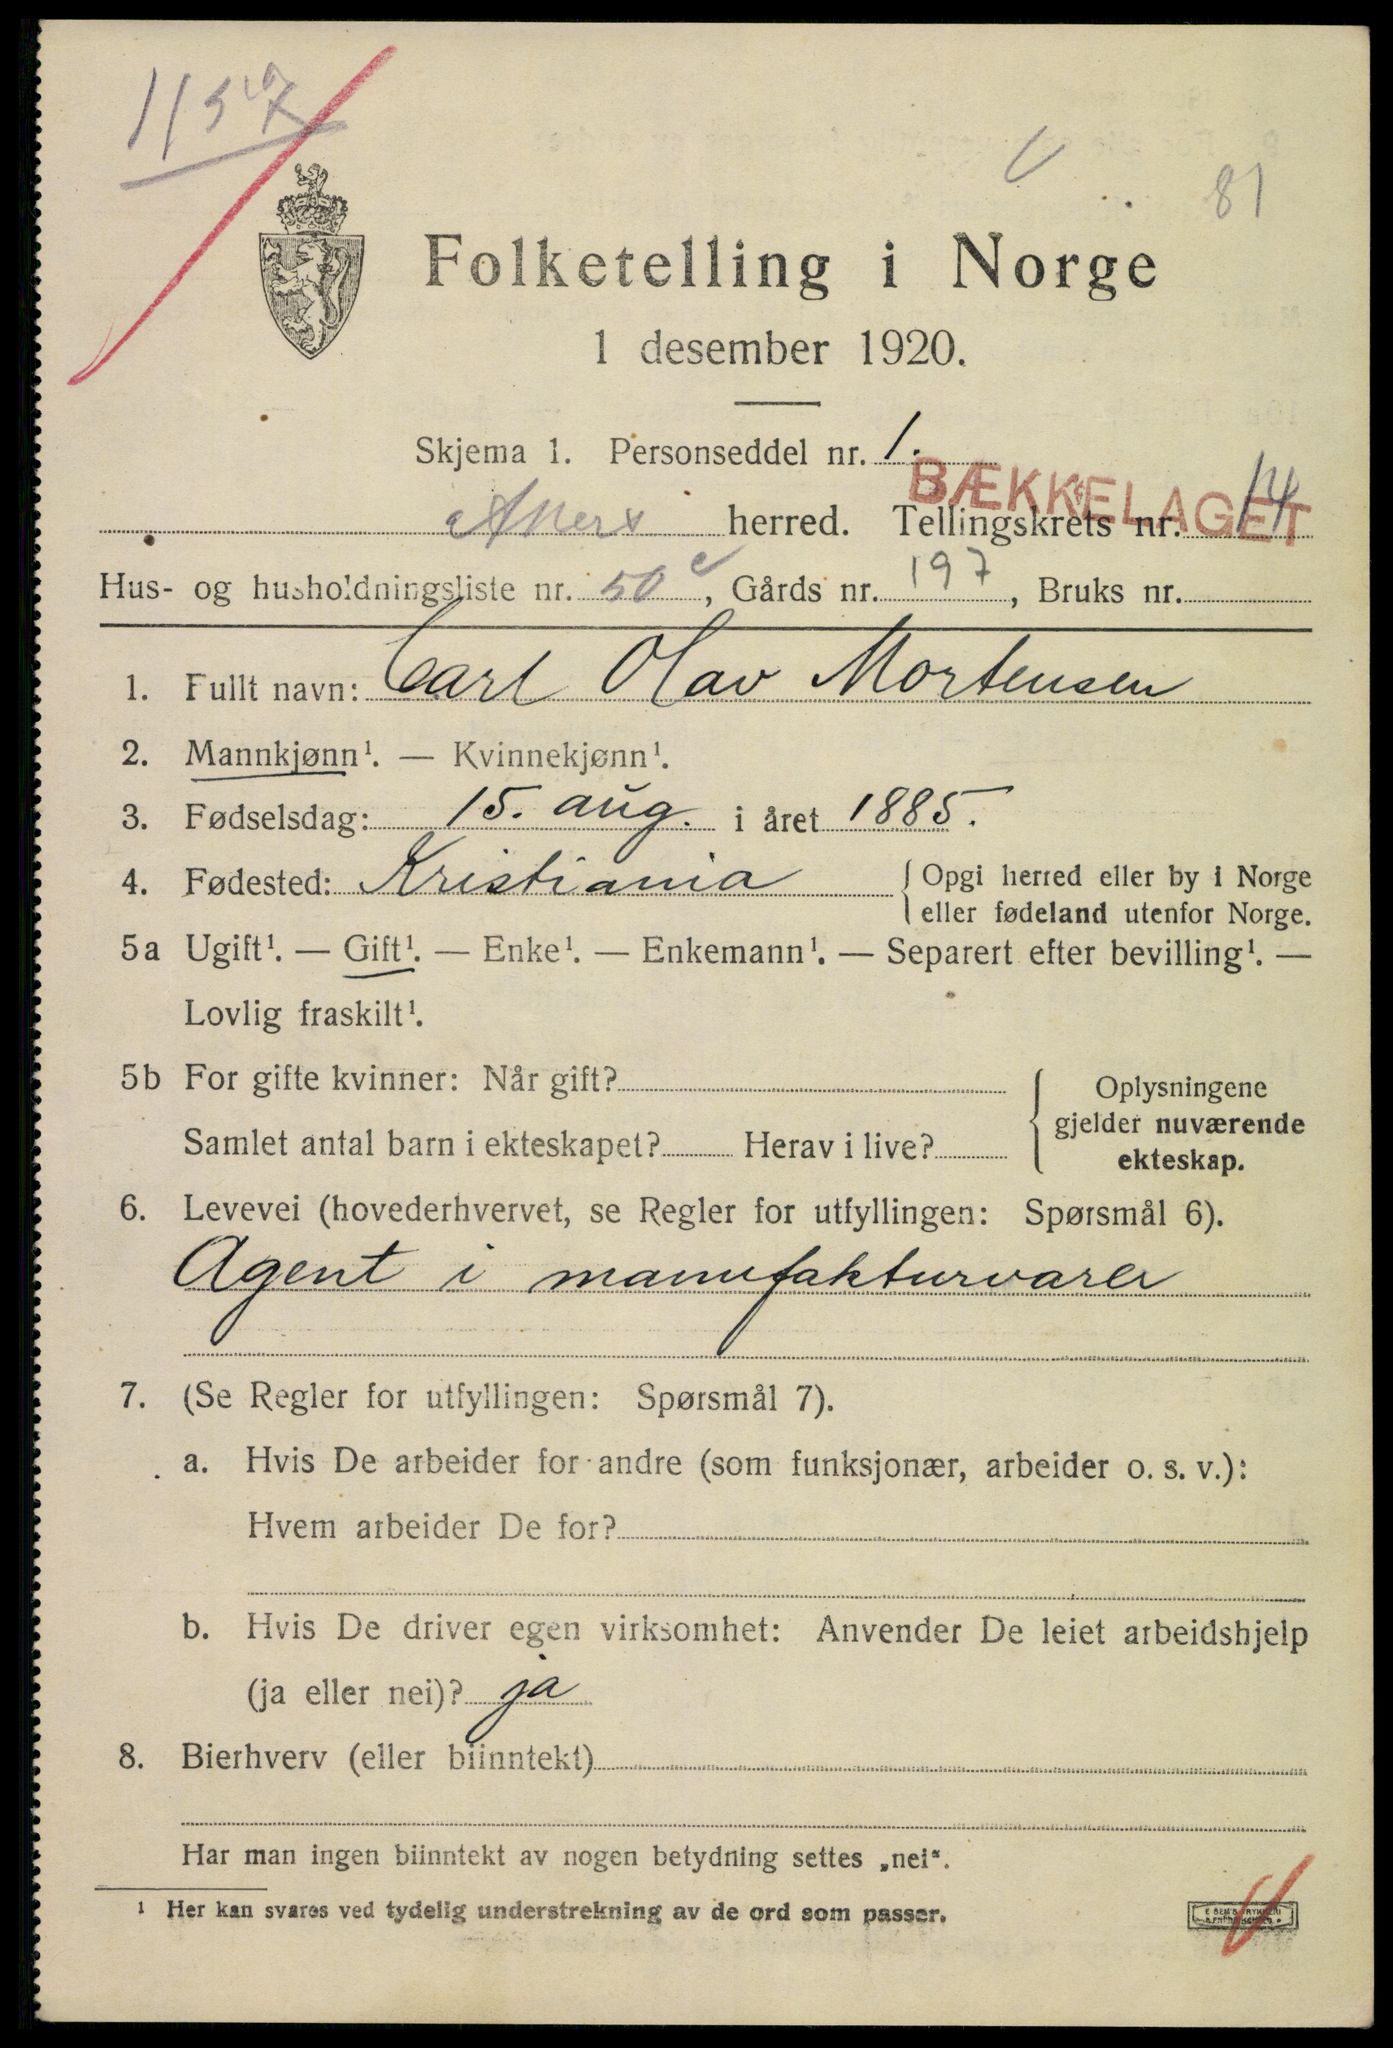 81
Folketelling i Norge
1 desember 1920.
Skjema 1. Personseddel nr. 1.
BÆKKELAGET
Akers herred. Tellingskrets nr. 14
Hus- og husholdningsliste nr. 50c, Gårds nr. 197, Bruks nr.
1. Fullt navn: Carl Olav Mortensen
2. Mannkjønn¹. — Kvinnekjønn¹.
3. Fødselsdag: 15. aug. i året 1885.
4. Fødested: Kristiania { Opgi herred eller by i Norge
eller fødeland utenfor Norge.
5a Ugift¹. — Gift¹. — Enke¹. — Enkemann¹. — Separert efter bevilling¹. —
Lovlig fraskilt¹.
5b For gifte kvinner: Når gift? { Oplysningene
gjelder nuværende
Samlet antal barn i ekteskapet? Herav i live?
ekteskap.
6. Levevei (hovederhvervet, se Regler for utfyllingen: Spørsmål 6).
Agent i manufakturvarer
7. (Se Regler for utfyllingen: Spørsmål 7).
a. Hvis De arbeider for andre (som funksjonær, arbeider o. s. v.):
Hvem arbeider De for?
b. Hvis De driver egen virksomhet: Anvender De leiet arbeidshjelp
(ja eller nei)? ja
8. Bierhverv (eller biinntekt)
Har man ingen biinntekt av nogen betydning settes „nei“.
¹ Her kan svares ved tydelig understrekning av de ord som passer.